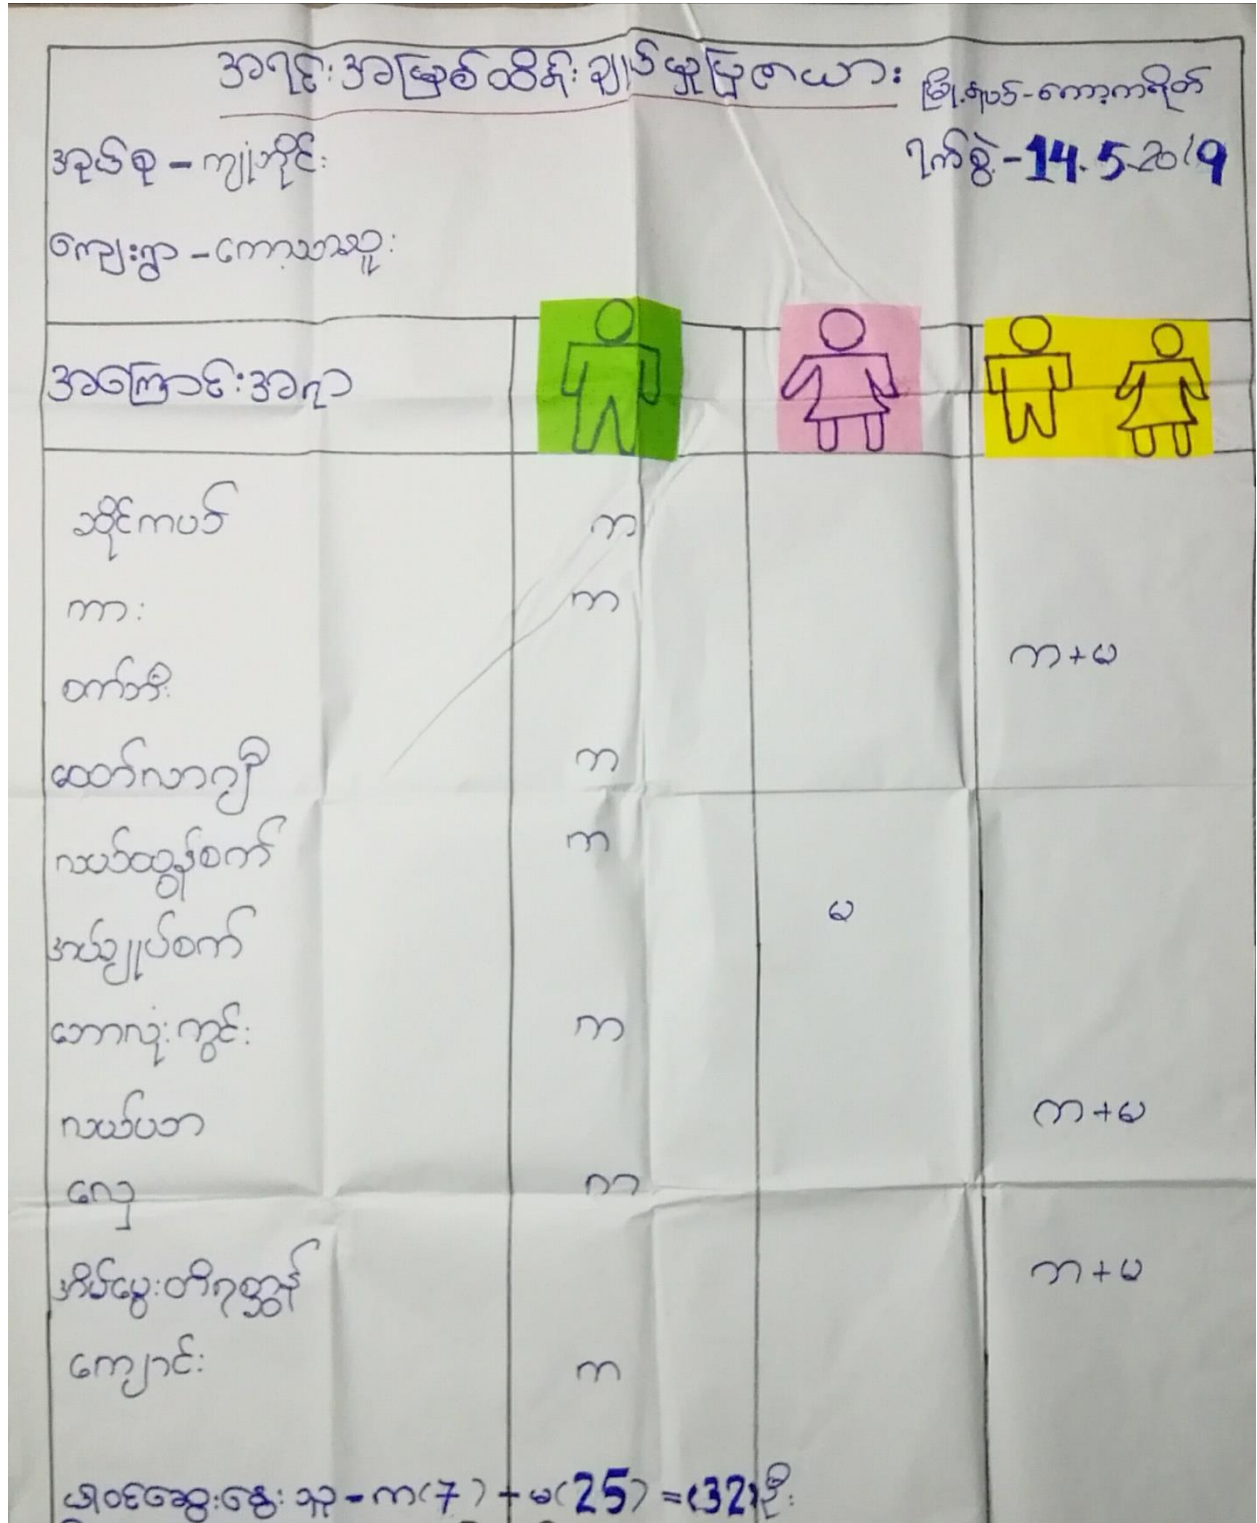 အရင်းအမြစ်ထိန်းချုပ်မှုပြဇယား
မြို့နယ်-ကော့ကရိတ်
အုပ်စု - ကျုံဘိုင်း
ရက်စွဲ-14.5.2019
ကျေးရွာ -
အကြောင်းအရာ
ဆိုင်ကယ် က
ကား က
စက်ဘီး က+မ
ထော်လာဂျီ က
လယ်ထွန်စက် က
အပ်ချုပ်စက် မ
ဘောလုံးကွင်း က
လယ်ယာ က+မ
လှေ က
အိမ်မွေးတိရစ္ဆာန် က+မ
ကျောင်း က
ပါဝင်ဆွေးနွေးသူ - က(7) + မ(25) = (32)ဦး